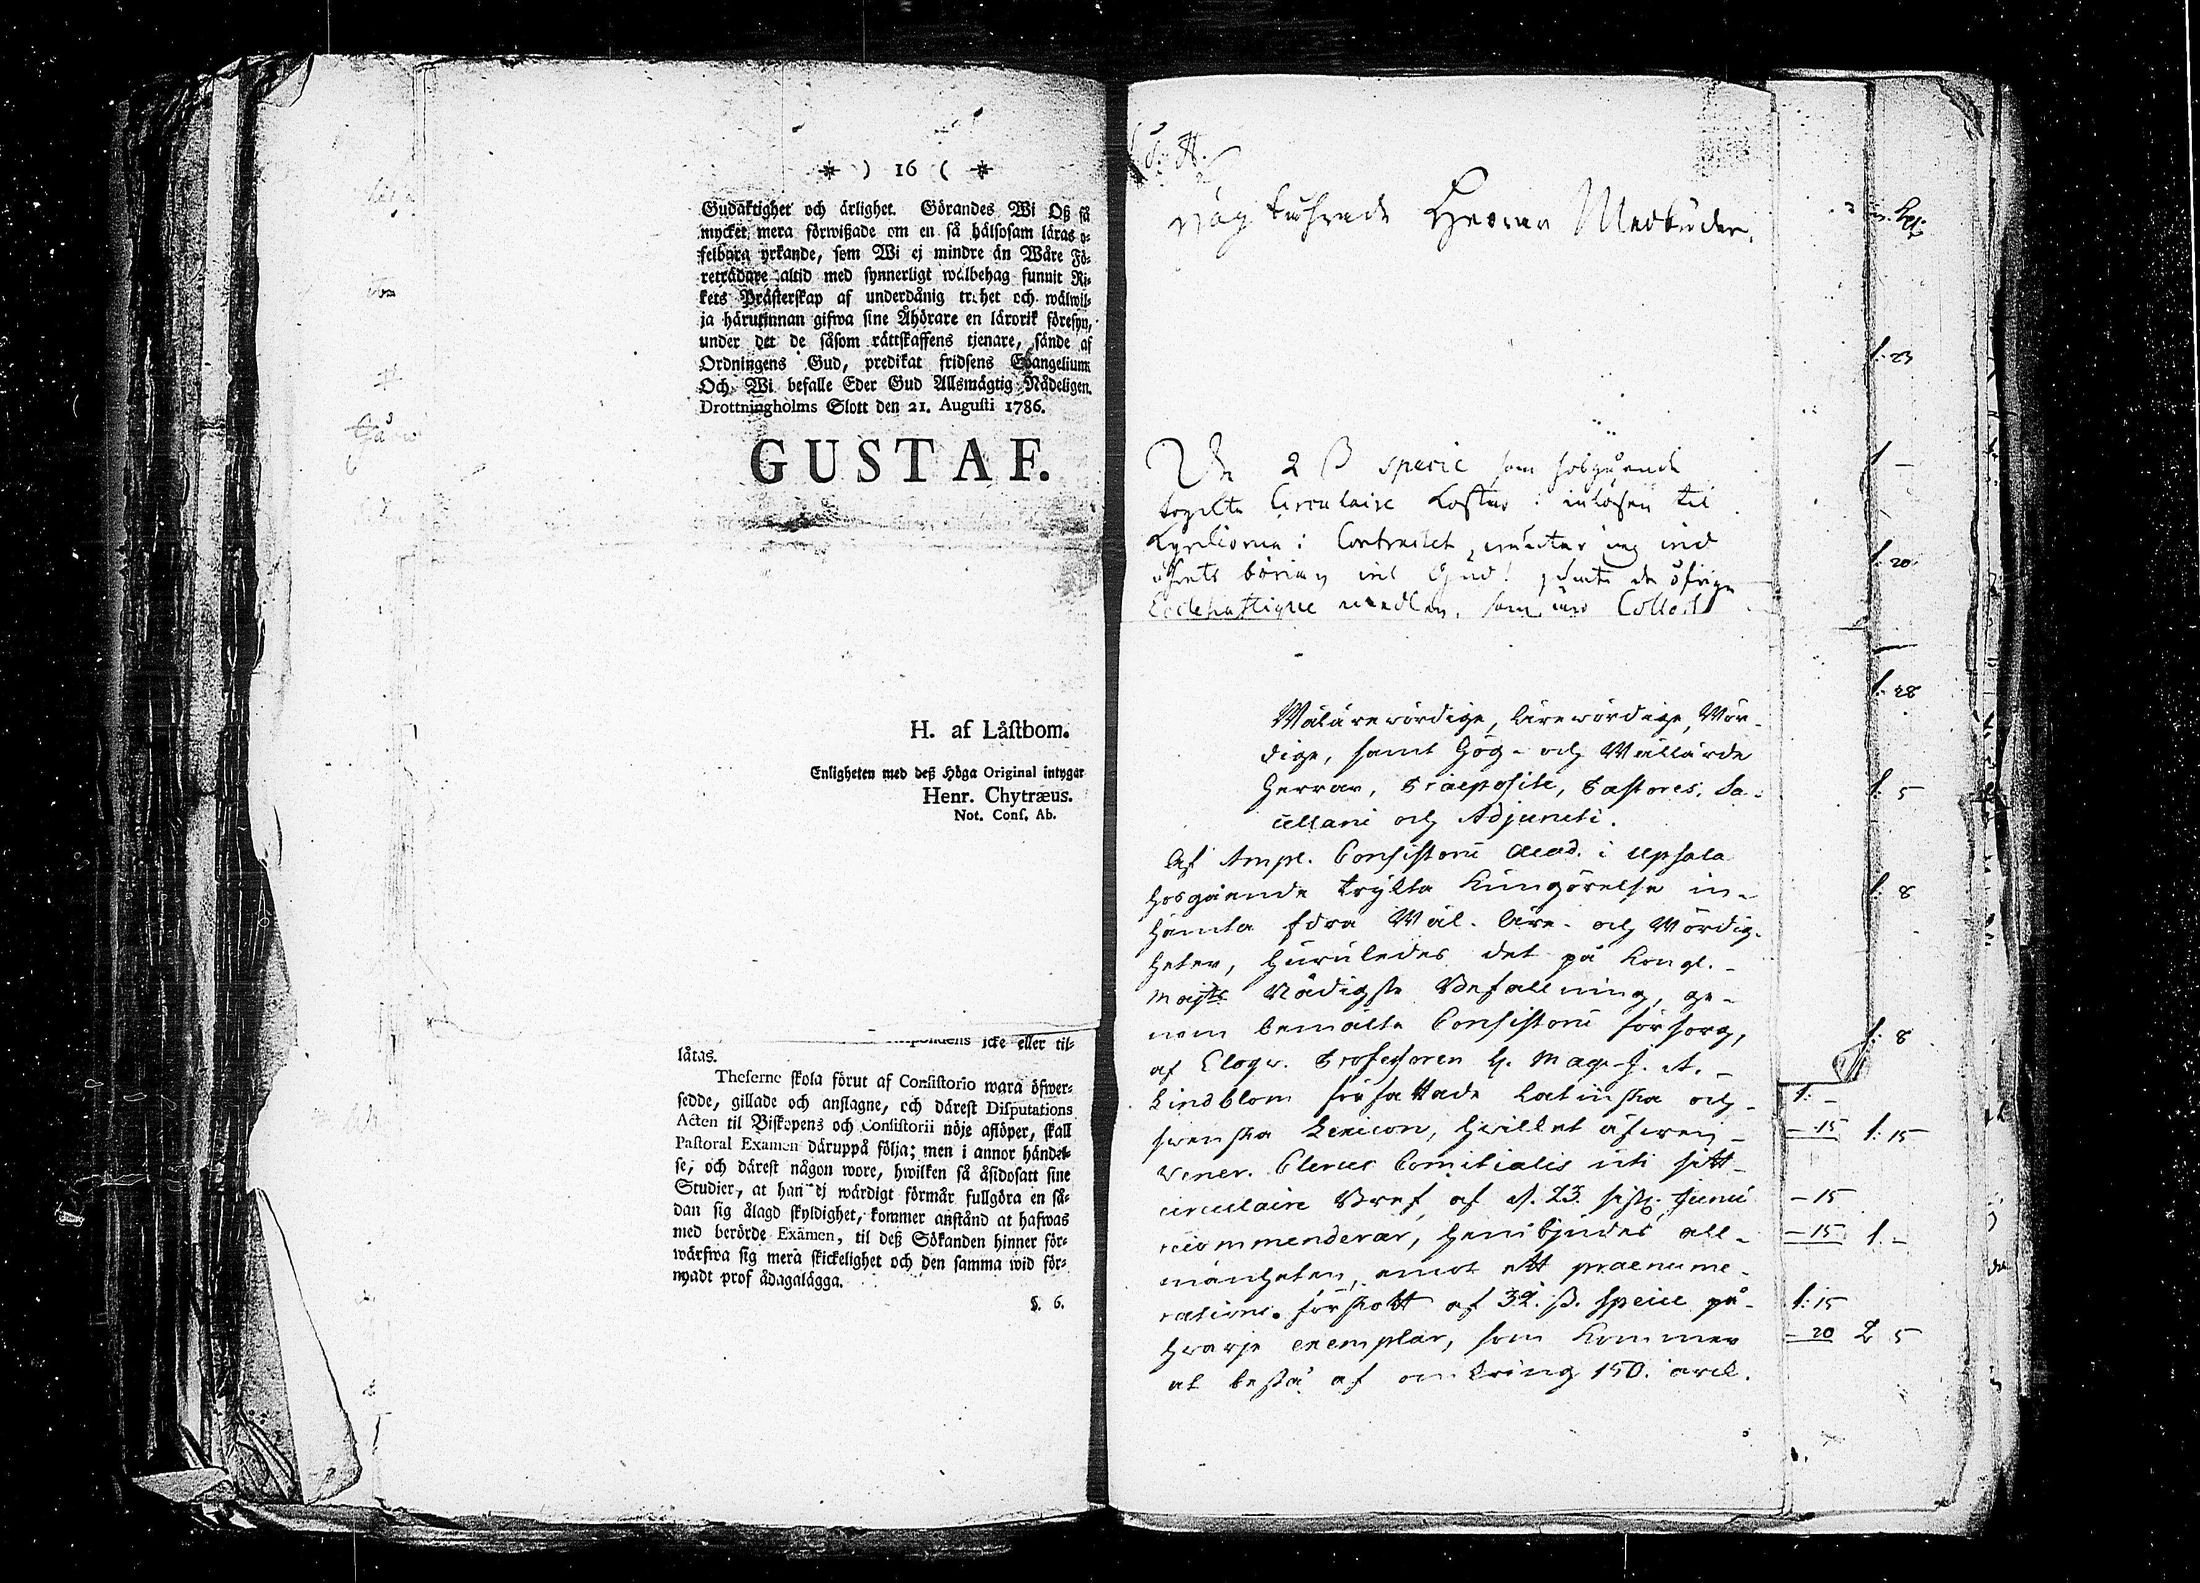 * ) 16 ( *
Gudaktighet och ärlighet. Görandes Wi Oß så
mycket mera förwißade om en så hälsosam läras o-
felbara yrkande, som Wi ej mindre än Wåre Fö-
reträdare altid med synnerligt wälbehag funnit Ri-
kets Prästerskap af underdånig trohet och wälwil-
ja härutinnan gifwa sine Åhörare en lärorik föresyn,
under det de såsom rättskaffens tjenare, sände af
Ordningens Gud, predikat fridsens Evangelium
Och Wi befalle Eder Gud Allsmägtig Nådeligen.
Drottningholms Slott den 21. Augusti 1786.
GUSTAF.
H. af Låstbom.
Enligheten med deß Höga Original intygar
Henr. Chytræus.
Not. Cons. Ab.
icke eller til-
låtas.
Theserne skola förut af Consistorio wara öfwer-
sedde, gillade och anslagne, och därest Disputations
Acten til Biskopens och Consistorii nöje aflöper, skall
Pastoral Examen däruppå följa; men i annor händel-
se, och därest någon wore, hwilken så åsidosatt sine
Studier, at han ej wärdigt förmår fullgöra en så-
dan sig ålagd skyldighet, kommer anstånd at hafwas
med berörde Examen, til deß Sökanden hinner för-
wärfwa sig mera skickelighet och den samma wid för-
nyadt prof ådagalägga.
§. 6.
Herrar Medbröder.
De 2 ß specie som hosgående
tryckte Circulaire kostar i inlösen til
Kyrckiorna i Contractet, wäntar jag wid
åhrets början wil Gud! samt de öfrige
Ecclesiastique medlen, som äro Collect
Wälärewördige, Ärewördige, Wör-
dige, samt Hög- och Wällärde
Herrar, Præposite, Pastores, Sa-
cellani och Adjuncti.
Af Ampl. Consistorii Acad. i Upsala
hosgående tryckta Kungörelse in-
hämta Edra Wäl- Äre- och Wördig-
heter, huruledes det på Kongl.
Majts Nådigste Befallning, ge-
nom bemälte Consistorii försorg,
af Eloqv. Professoren H. Mag. J. A.
Lindblom författade Latinska och
Swenska Lexicon, hwilket äfwen
Vener. Clerus Comitialis uti sitt
circulaire Bref af d. 23. sistl. Junii
recommenderar, hembjudes all-
mänheten, emot ett prænume-
rations-förskott af 32. ß. specie på
hwarje exemplar, som kommer
at bestå af omkring 150. ark.
1: 23
1 -
1: 20
1: 28
1: 5
1: 8
1: 8
1: -
- 15 1: 15
- 15
- 15 1 -
1: 15
- 20 2 5